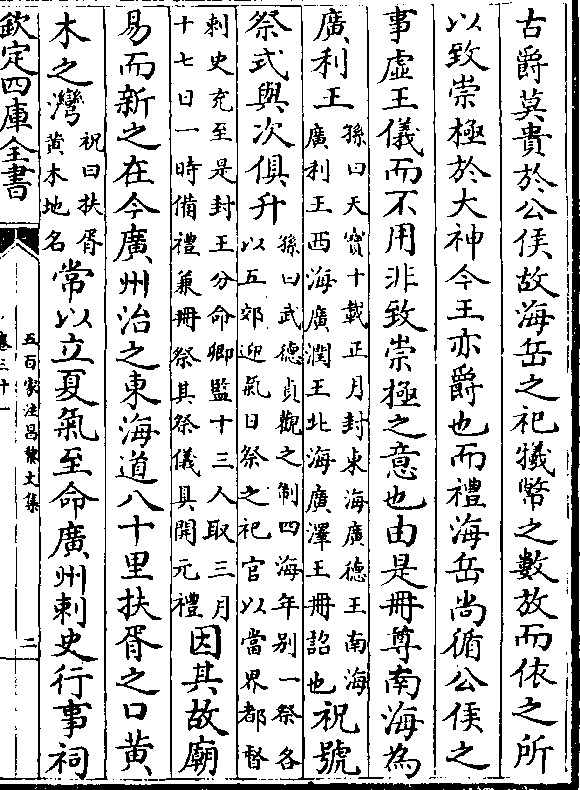 古爵莫貴於公侯故海岳之祀犧幣之數放而依之所
以致崇極於大神今王亦爵也而禮海岳尚循公侯之
事虛王儀而不用非致崇極之意也由是冊尊南海為
廣利王孫曰天寶十載正月封東海廣德王南海廣利王西海廣潤王北海廣澤王冊詔也祝號
祭式與次俱升孫曰武德貞觀之制四海年别一祭各以五郊迎氣日祭之祀官以當界都督
刺史充至是封王分命卿監十三人取三月十七日一時備禮兼冊祭其祭儀具開元禮因其故廟
易而新之在今廣州治之東海道八十里扶胥之口黄
木之灣祝曰扶胥黄木地名常以立夏氣至命廣州刺史行事祠
欽定四庫全書
卷三十一
五百家注昌黎文集
二